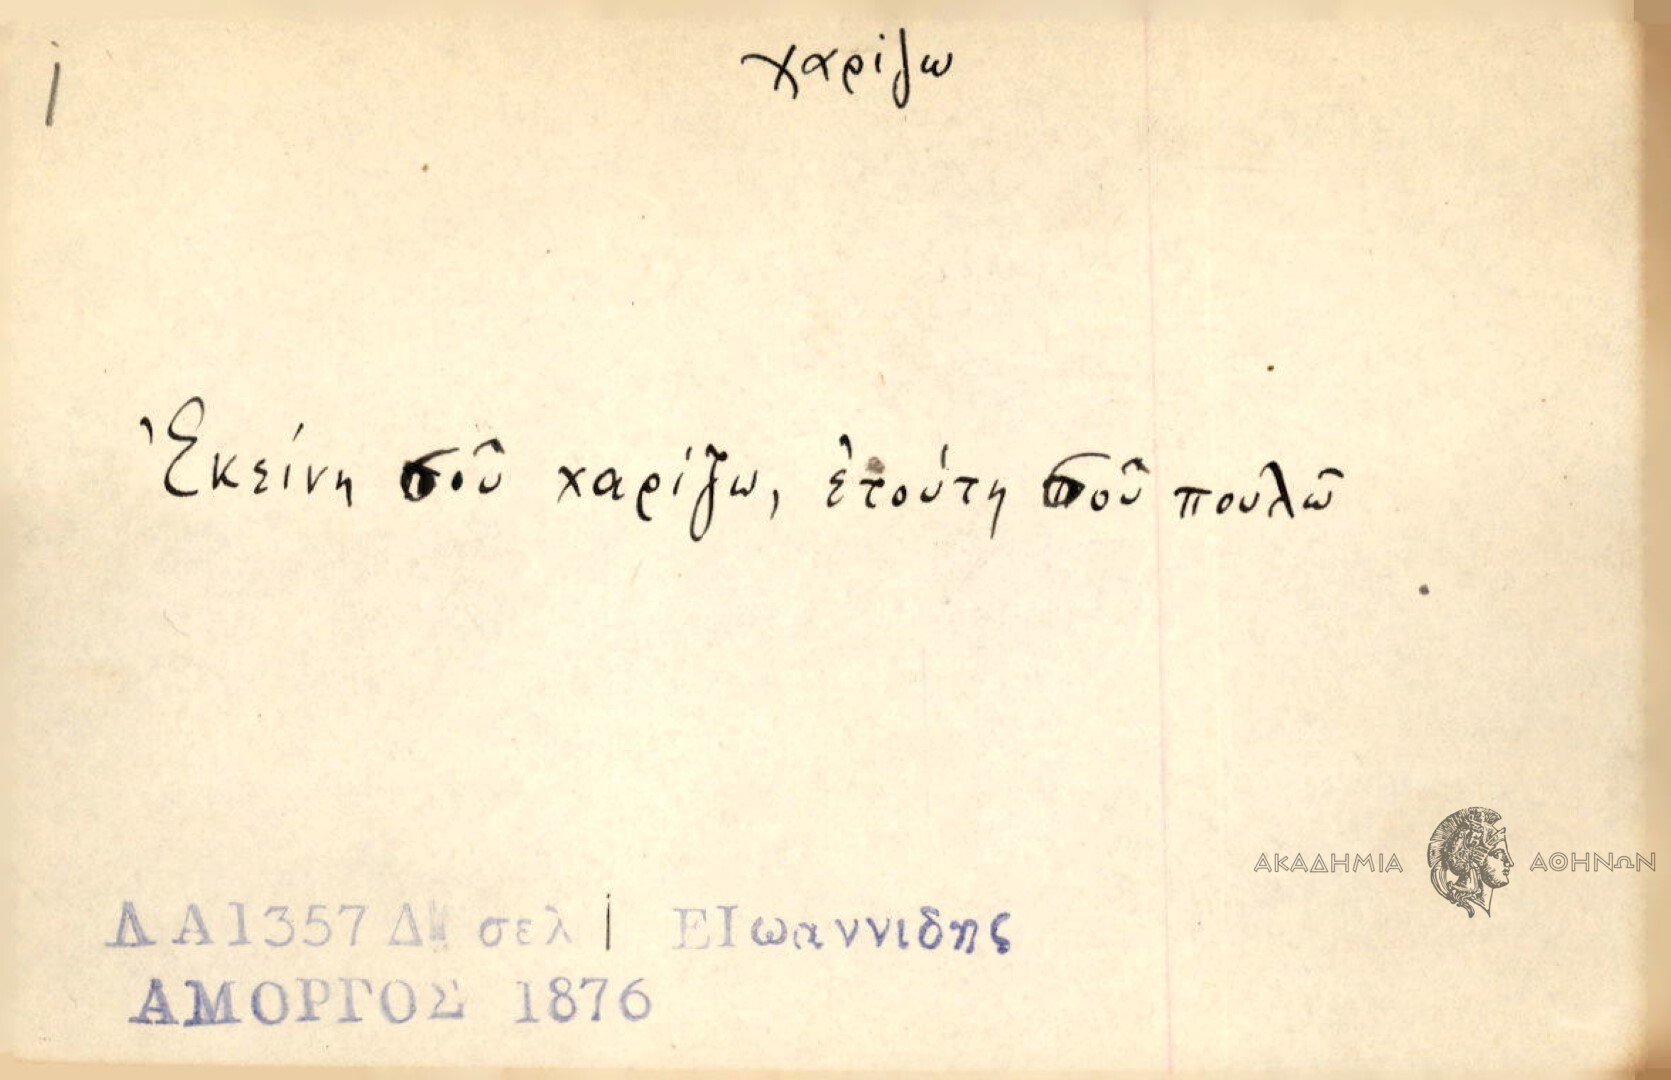 1
χαρίζω
Ἐκείνη σοῦ χαρίζω, ἐτούτη σοῦ πουλῶ
ΑΚΑΔΗΜΙΑ ΑΘΗΝΩΝ
Δ Α 1357 Δ σελ 1 ΕΙωαννιδης
ΑΜΟΡΓΟΣ 1876